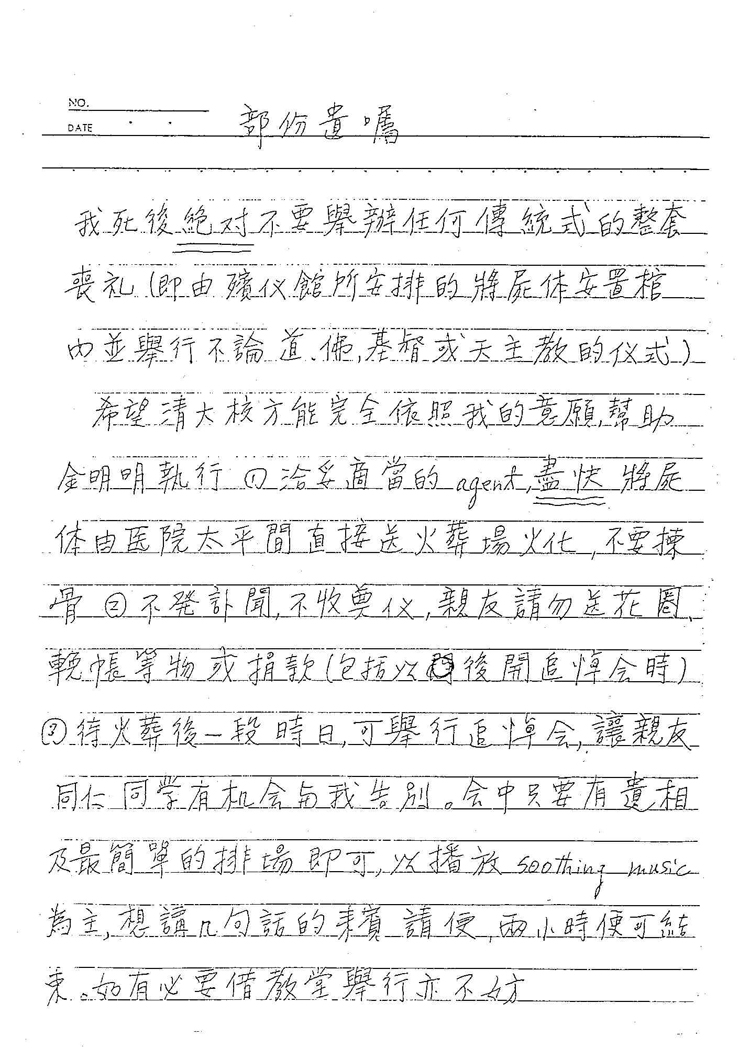 NO.
DATE
部份遺囑
我死後絕对不要舉辦任何傳統式的整套
喪礼(即由殯仪館所安排的將屍体安置棺
內並舉行不論道、佛,基督或天主教的仪式)
希望清大核方能完全依照我的意願,幫助
金明明執行 ① 洽妥適當的 agent,盡快將屍
体由医院太平間直接送火葬場火化,不要揀
骨 ② 不發訃聞,不收奠仪,親友請勿送花圈、
輓帳等物或捐款(包括以後開追悼会時)
③ 待火葬後一段時日,可舉行追悼会,讓親友
同仁同学有机会与我告別。会中只要有遺相
及最簡單的排場即可,以播放 soothing music
為主,想講几句話的來賓請便,兩小時便可結
束。如有必要借教堂舉行亦不妨